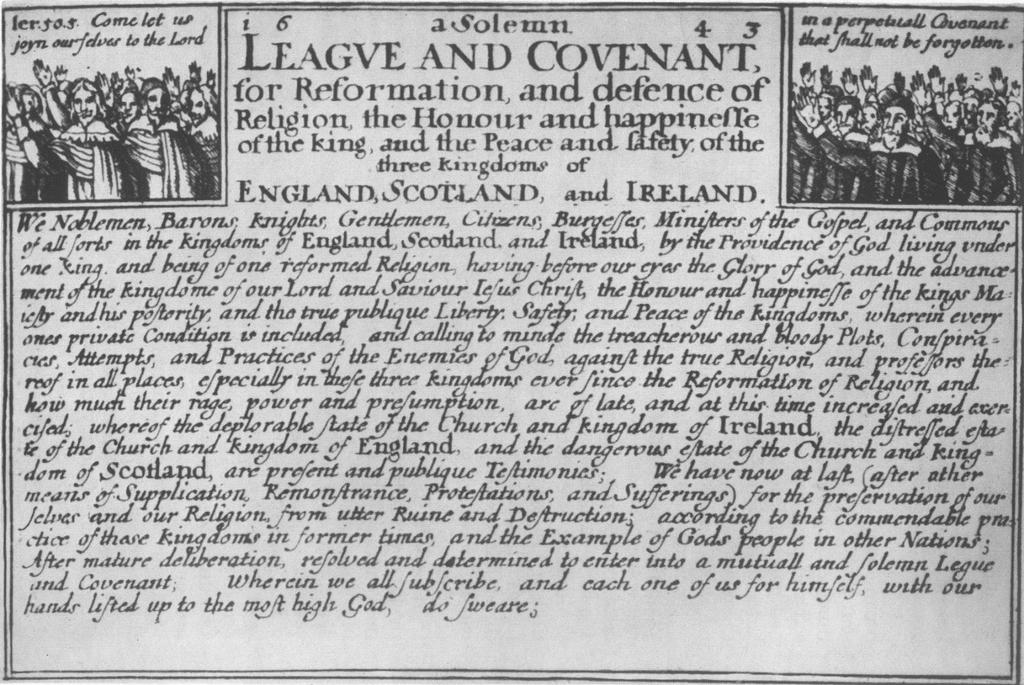 Ier. 50. 5. Come let us
joyn ourselves to the Lord
1 6 a Solemn 4 3
LEAGVE AND COVENANT,
for Reformation, and defence of
Religion, the Honour and happinesse
of the king, and the Peace and safety of the
three kingdoms of
ENGLAND, SCOTLAND, and IRELAND.
in a perpetuall Covenant
that shall not be forgotton.
We Noblemen, Barons, knights, Gentlemen, Citizens, Burgesses, Ministers of the Gospel, and Commons
of all sorts in the kingdoms of England, Scotland, and Ireland, by the Providence of God living vnder
one king, and being of one reformed Religion, having before our eyes the Glory of God, and the advance-
ment of the kingdome of our Lord and Saviour Iesus Christ, the Honour and happinesse of the kings Ma-
iesty and his posterity, and the true publique Liberty, Safety, and Peace of the kingdoms, wherein every
ones private Condition is included, and calling to minde the treacherous and bloody Plots, Conspira-
cies, Attempts, and Practices of the Enemies of God, against the true Religion, and professors the-
reof in all places, especially in these three kingdoms ever since the Reformation of Religion, and
how much their rage, power and presumption, are of late, and at this time increased and exer-
cised; whereof the deplorable state of the Church and kingdom of Ireland, the distressed esta-
te of the Church and kingdom of England, and the dangerous estate of the Church and king-
dom of Scotland, are present and publique Testimonies; We have now at last, (after other
means of Supplication, Remonstrance, Protestations, and Sufferings) for the preservation of our
selves and our Religion, from utter Ruine and Destruction; according to the commendable pra-
ctice of these kingdoms in former times, and the Example of Gods people in other Nations;
After mature deliberation, resolved and determined to enter into a mutuall and solemn Legue
and Covenant; Wherein we all subscribe, and each one of us for himself, with our
hands lifted up to the most high God, do sweare;